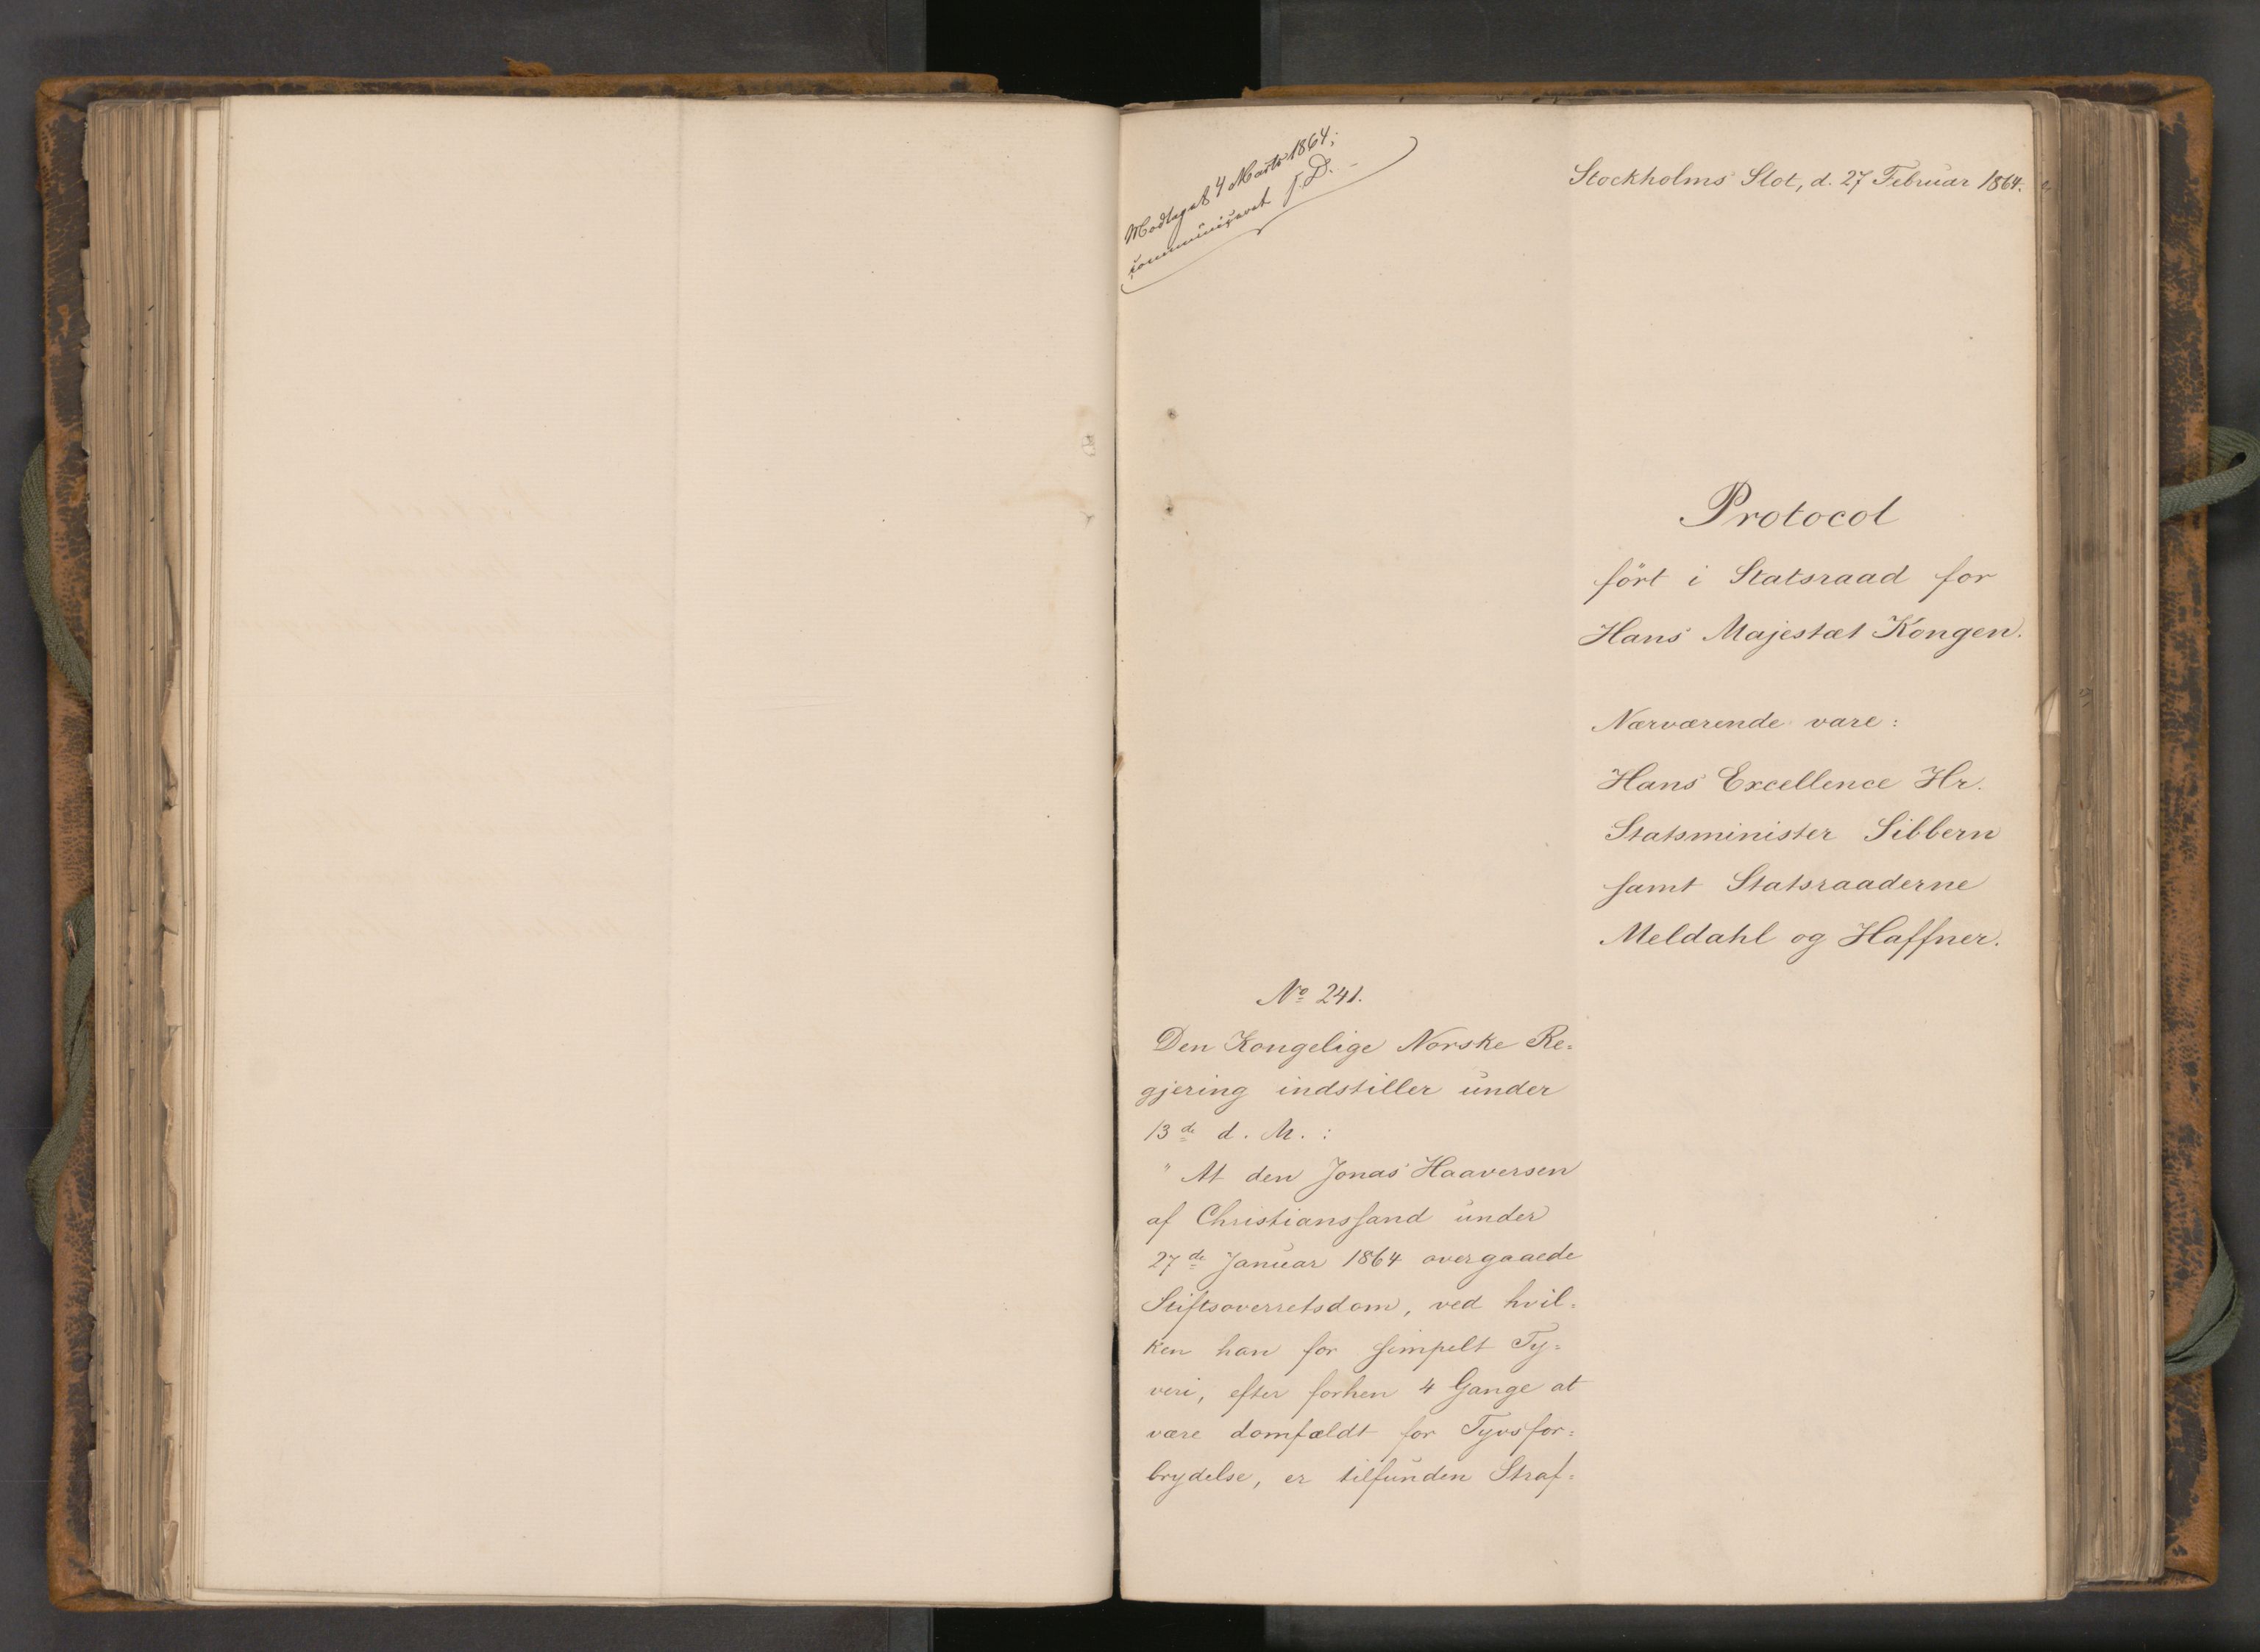 Modtaget 4 Marts 1864;
kommuniceret s. D.
Stockholms Slot, d. 27 Februar 1864.
Protocol
fört i Statsraad for
Hans Majestæt Kongen.
Nærværende vare:
Hans Excellence Hr.
Statsminister Sibbern
samt Statsraaderne
Meldahl og Haffner.
No 241.
Den Kongelige Norske Re=
gjering indstiller under
13de d. M.:
"At den Jonas Haaversen
af Christianssand under
27de Januar 1864 overgaaede
Stiftsoverretsdom, ved hvil=
ken han for simpelt Ty=
veri, efter forhen 4 Gange at
være domfældt for Tyvsfor=
brydelse, er tilfunden Straf=